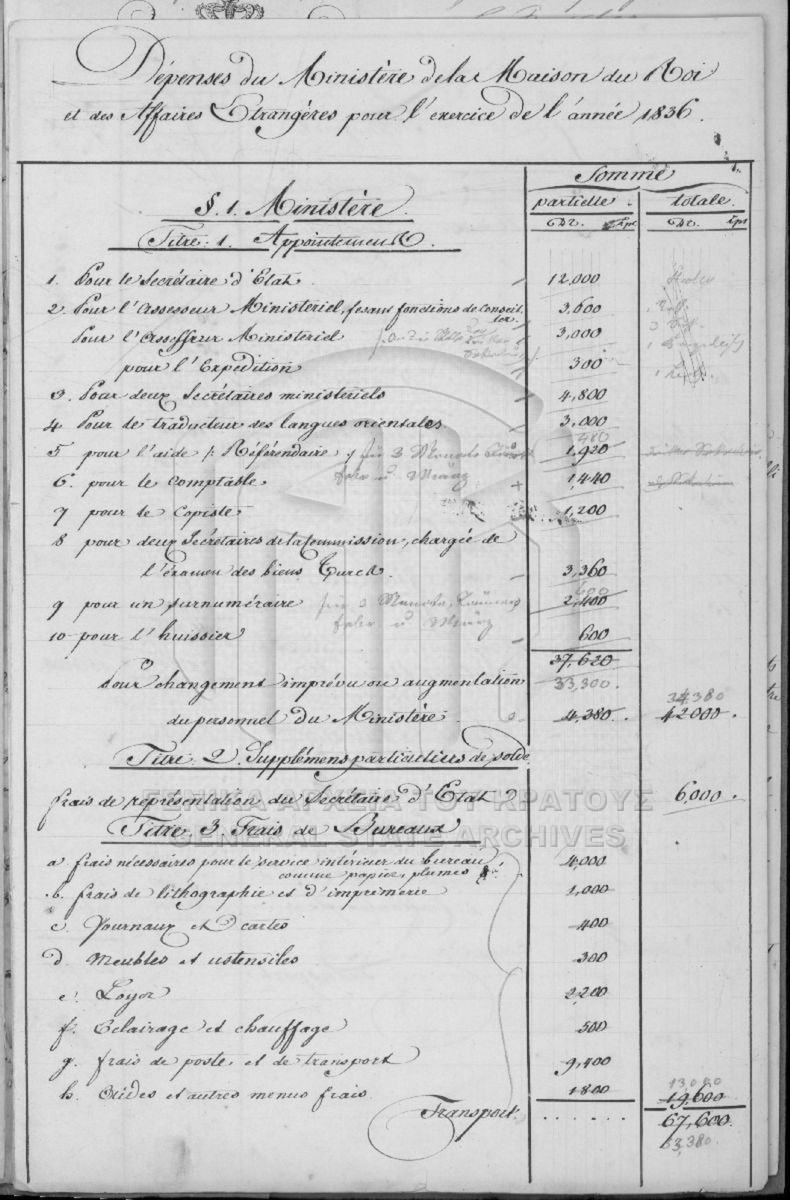 Dépenses du Ministère de la Maison du Roi
et des Affaires Etrangères pour l'exercice de l'année 1836.
1.
Somme
partielle totale
Dr. Lpt Dr. Lpt
§. 1. Ministère.
Titre. 1. Appointement
1. Pour le Secrétaire d'Etat 12,000
2. Pour l'Assesseur Ministeriel, fesant fonctions de Conseiller 3,600
Pour l'Assesseur Ministeriel 3,000
pour l'Expédition 300
3. Pour deux Secrétaires ministeriels 4,800
4 Pour le traducteur des langues orientales 3,000
480
5 pour l'aide /: Référendaire :/ für 3 Monate 1,920
6. pour le Comptable febr u März + 1,440
7 pour le Copiste 1,200
8 pour deux Secrétaires de la Commission, chargée de
l'éxamen des biens Turcs. 3,360
600
9 pour un surnuméraire für 3 Monate, Januar 2,400
febr u März
10 pour l'huissier 600
37,620
Pour changement imprévu ou augmentation 33,300.
34,380
du personnel du Ministère 4,380. 42000.
Titre. 2. Supplémens particuliers de solde
frais de représentation du Secrétaire d'Etat 6,000.
ΓΕΝΙΚΑ ΑΡΧΕΙΑ ΤΟΥ ΚΡΑΤΟΥΣ
Titre. 3. Frais de Bureaux
GENERAL STATE ARCHIVES
a frais nécessaires pour le service intérieur du bureau 4,000
comme papier, plumes
b. frais de lithographie et d'imprimerie 1,000
c. Journaux et cartes 400
d. Meubles et ustensiles 300
e. Loyer 2,200
f. Eclairage et chauffage 500
g. frais de poste, et de transport 9,400
13,000
h. Aides et autres menus frais. 1800 19,600
Transport. . . . . . . 67,600.
53,380.